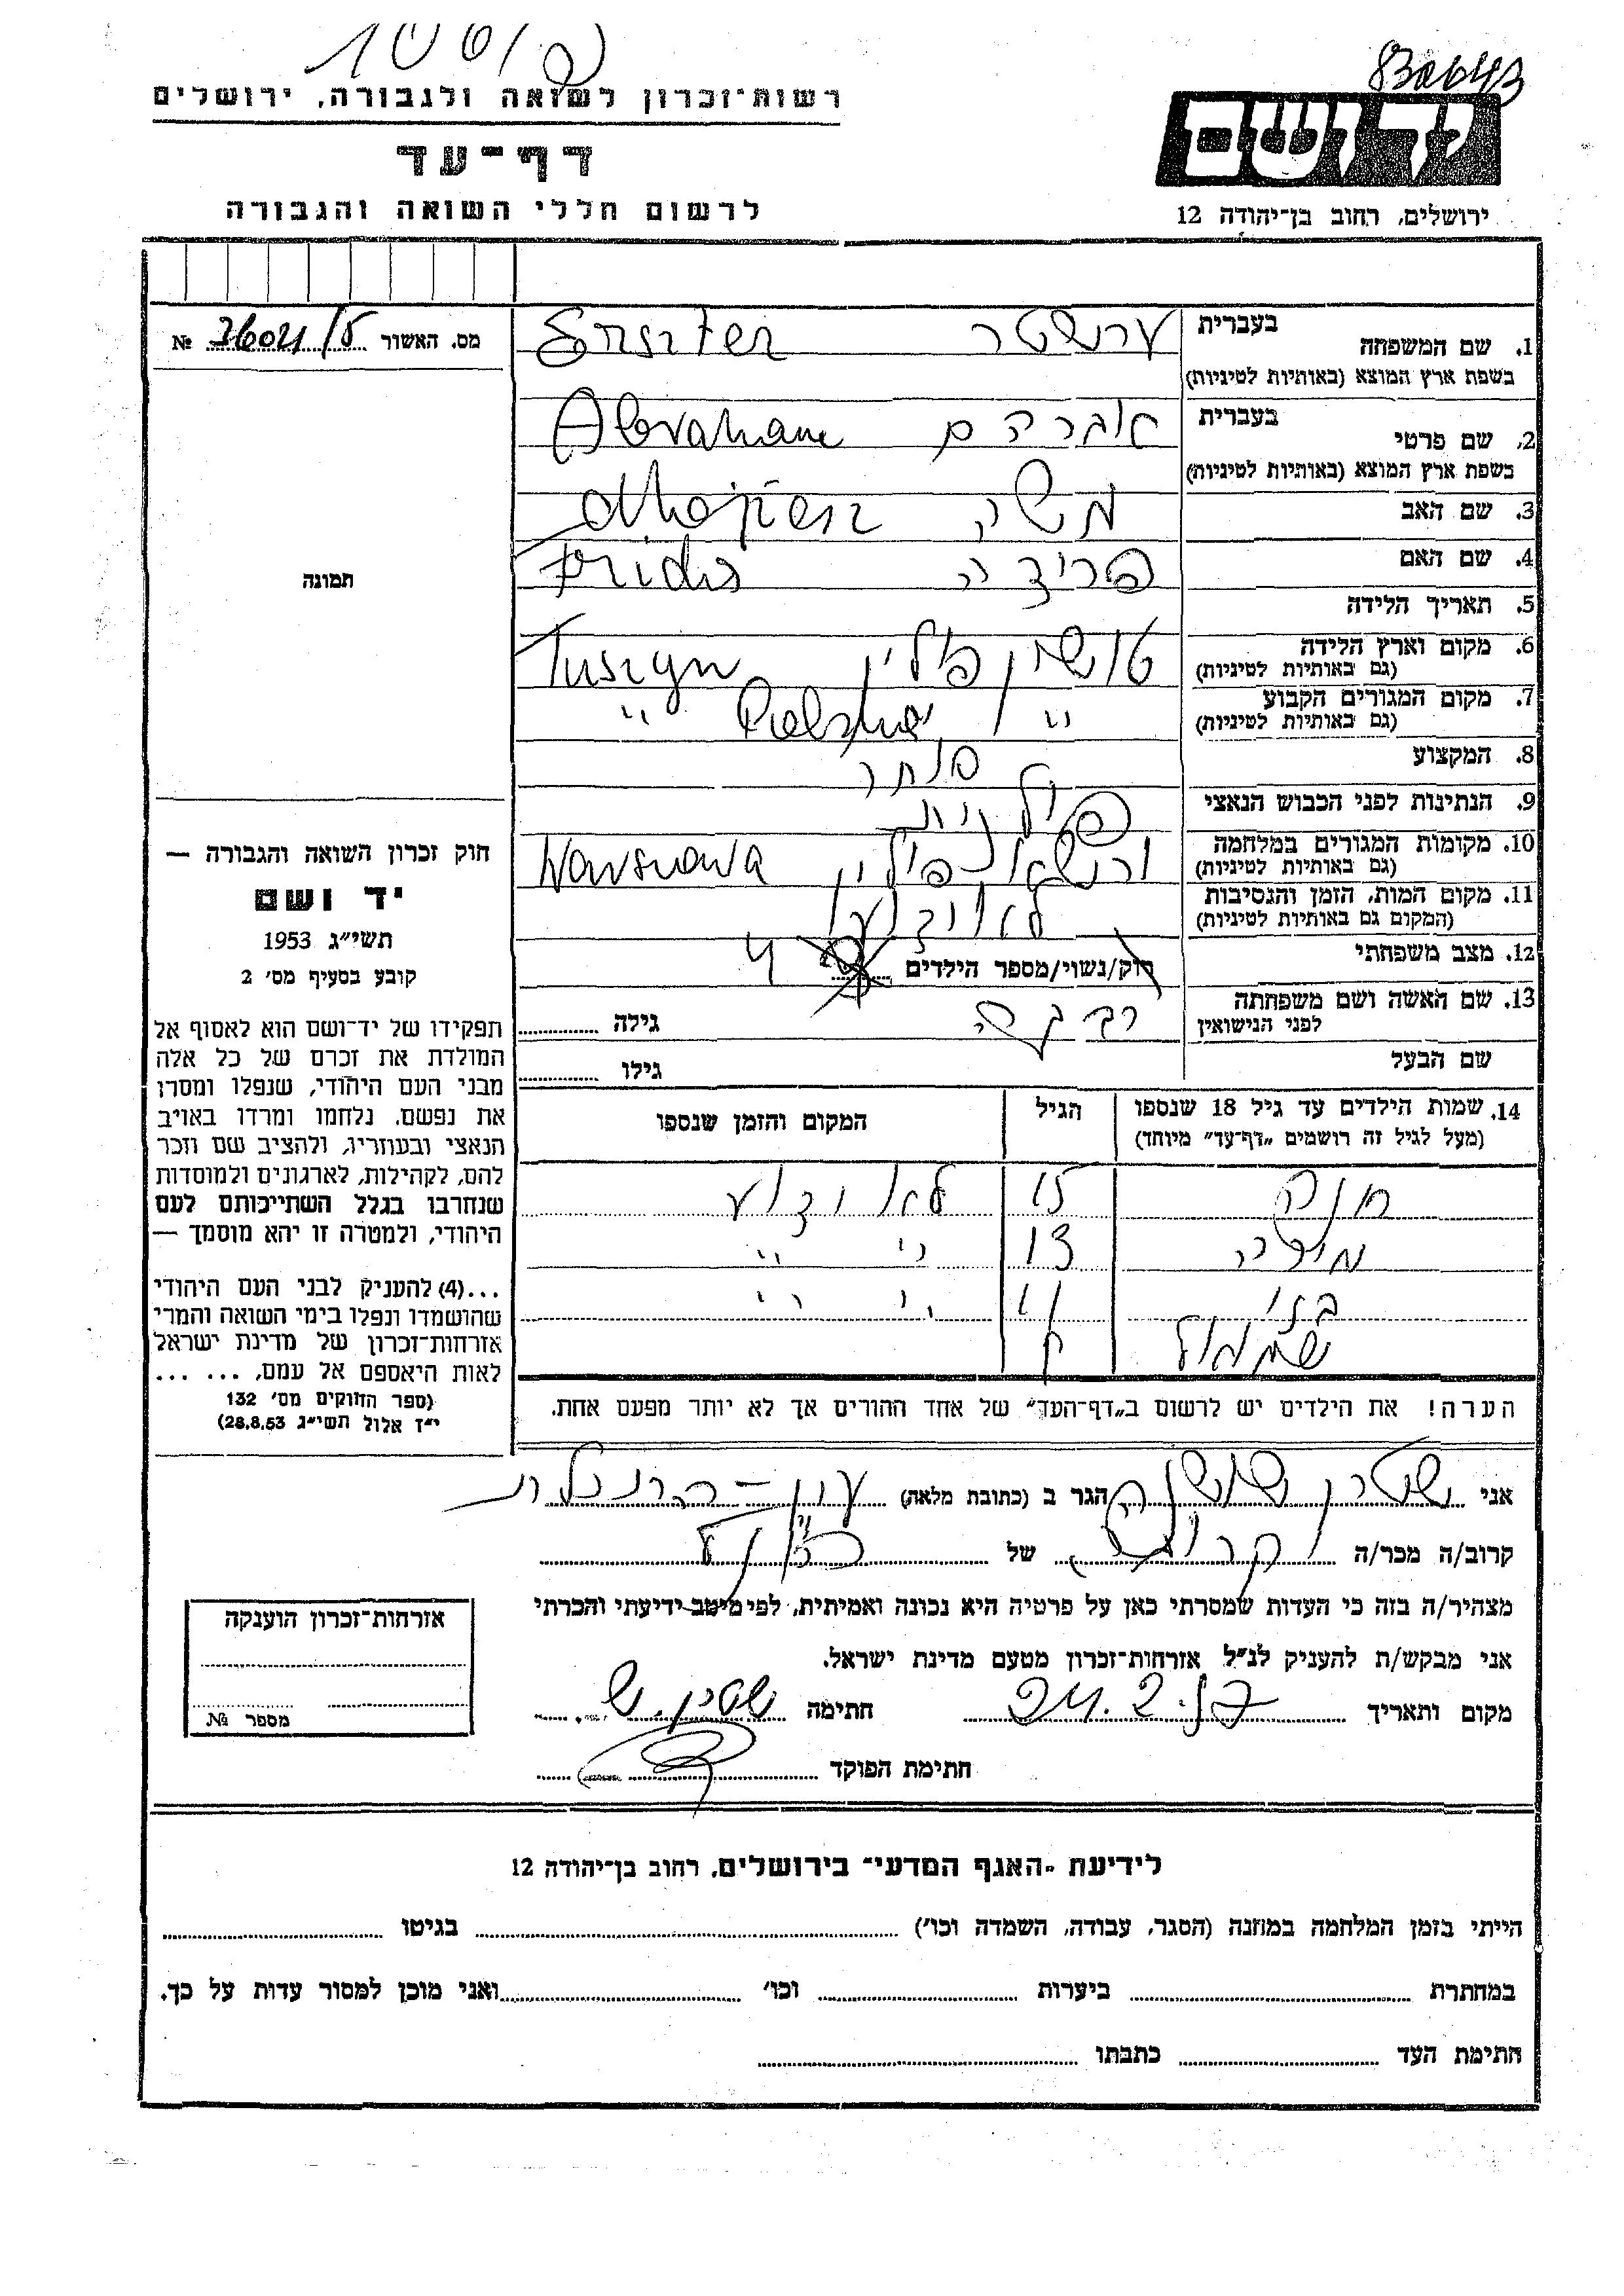 רשות־זכרון לשואה ולגבורה, ירושלים
דף־עד
לרשום חללי השואה והגבורה
יד ושם
ירושלים, רחוב בן־יהודה 12
מס. האשור №
1. שם המשפחה
בעברית ערשטר Erszter
בשפת ארץ המוצא (באותיות לטיניות)
2. שם פרטי
בעברית אברהם Abraham
בשפת ארץ המוצא (באותיות לטיניות)
3. שם האב משה Mojżesz
4. שם האם פרידה Frida
5. תאריך הלידה
6. מקום וארץ הלידה טושין פולין Tuszyn
(גם באותיות לטיניות)
7. מקום המגורים הקבוע " Polska "
(גם באותיות לטיניות)
8. המקצוע סוחר
9. הנתינות לפני הכבוש הנאצי פולנית
10. מקומות המגורים במלחמה ורשא פולין Warszawa
(גם באותיות לטיניות)
11. מקום המות, הזמן והנסיבות לא ידוע
(המקום גם באותיות לטיניות)
12. מצב משפחתי רוק/נשוי/מספר הילדים 4
13. שם האשה ושם משפחתה רבקה גילה
לפני הנישואין
שם הבעל גילו
14. שמות הילדים עד גיל 18 שנספו הגיל המקום והזמן שנספו
(מעל לגיל זה רושמים „דף־עד" מיוחד)
15 לא ידוע
13 " "
11 " "
שמואל
הערה! את הילדים יש לרשום ב„דף־העד" של אחד ההורים אך לא יותר מפעם אחת.
תמונה
חוק זכרון השואה והגבורה —
יד ושם
תשי"ג 1953
קובע בסעיף מס' 2
תפקידו של יד־ושם הוא לאסוף אל
המולדת את זכרם של כל אלה
מבני העם היהודי, שנפלו ומסרו
את נפשם, נלחמו ומרדו באויב
הנאצי ובעוזריו, ולהציב שם וזכר
להם, לקהילות, לארגונים ולמוסדות
שנחרבו בגלל השתייכותם לעם
היהודי, ולמטרה זו יהא מוסמך —
...(4) להעניק לבני העם היהודי
שהושמדו ונפלו בימי השואה והמרי
אזרחות־זכרון של מדינת ישראל
לאות היאספם אל עמם, ... ...
(ספר החוקים מס' 132
י"ז אלול תשי"ג 28.8.53)
אני שטרן שושנה הגר ב (כתובת מלאה)
קרוב/ה מכר/ה קרובה של הנ"ל
מצהיר/ה בזה כי העדות שמסרתי כאן על פרטיה היא נכונה ואמיתית, לפי מיטב ידיעתי והכרתי
אני מבקש/ת להעניק לנ"ל אזרחות־זכרון מטעם מדינת ישראל.
מקום ותאריך 24.2.57 חתימה שטרן. ש.
חתימת הפוקד
אזרחות־זכרון הוענקה
מספר №
לידיעת „האגף המדעי" בירושלים, רחוב בן־יהודה 12
הייתי בזמן המלחמה במחנה (הסגר, עבודה, השמדה וכו') בגיטו
במחתרת ביערות וכו' ואני מוכן למסור עדות על כך.
חתימת העד כתבתו